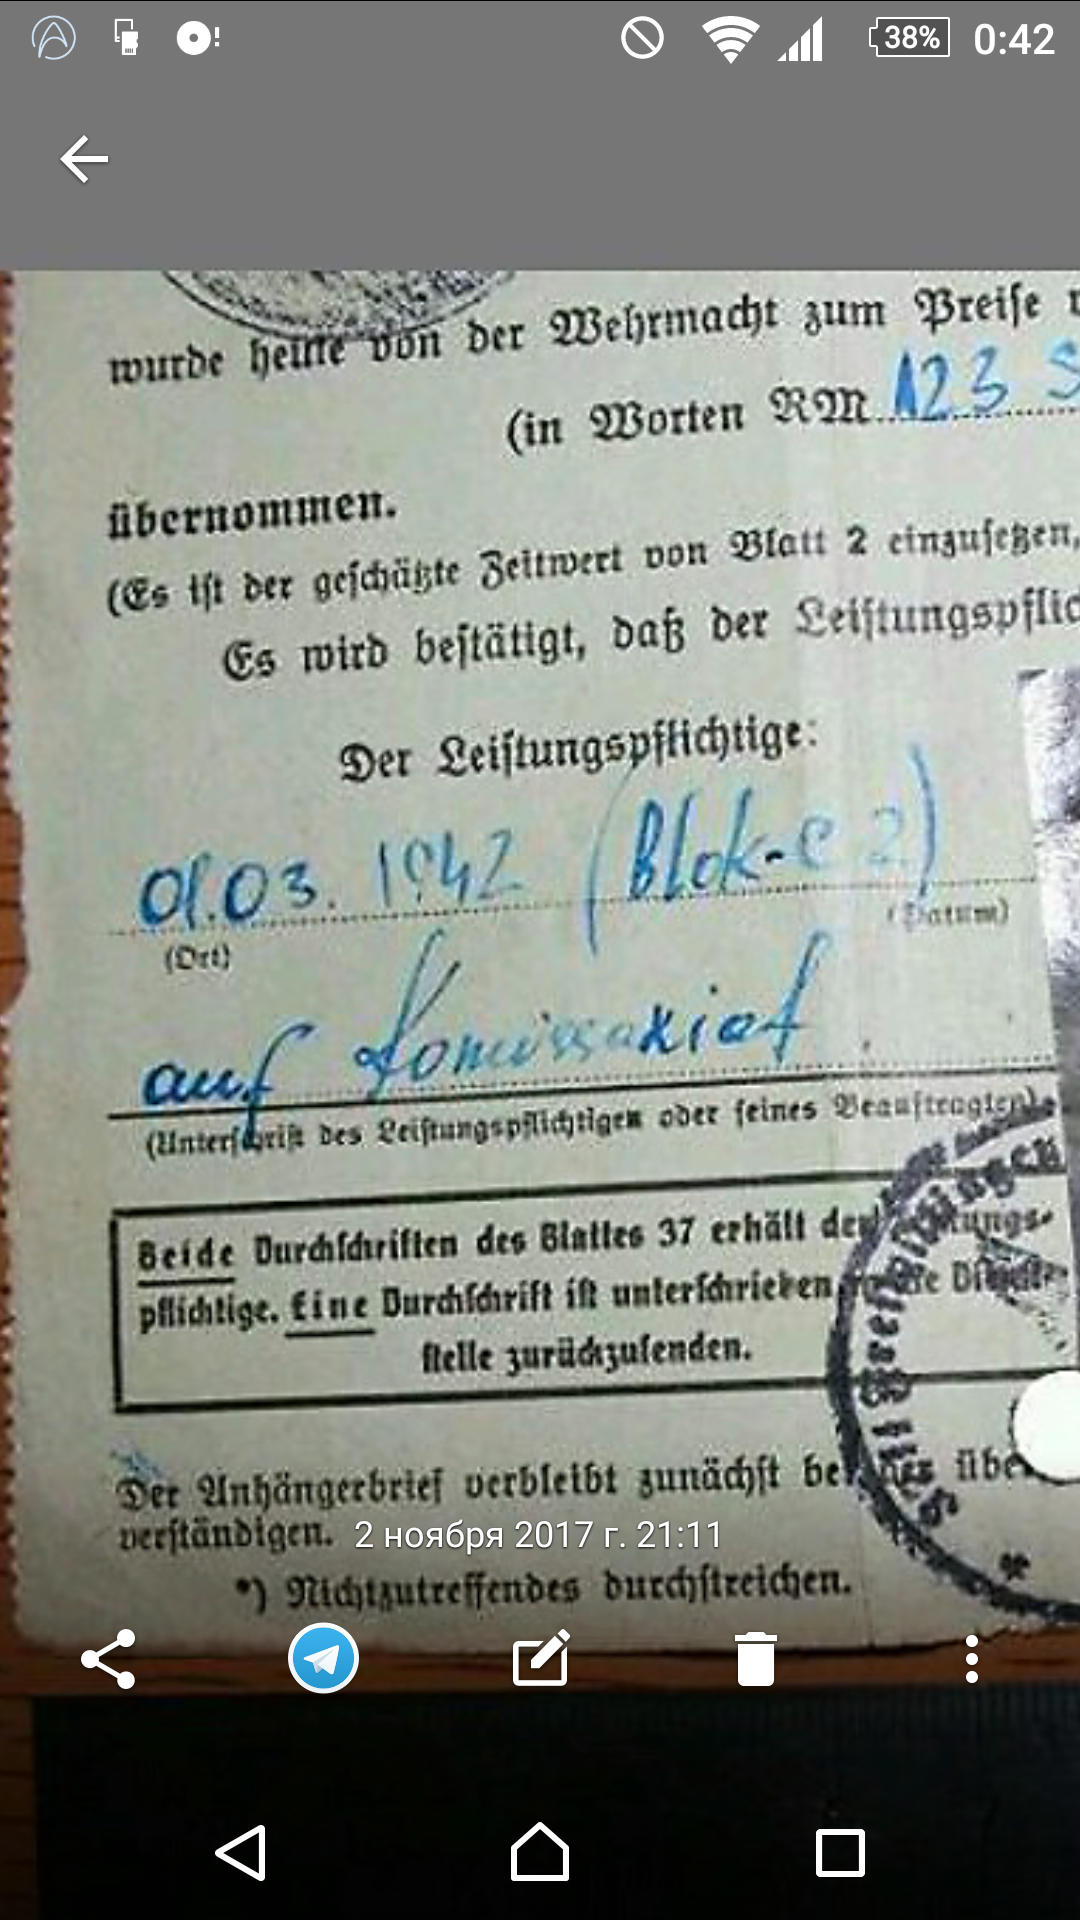 38% 0:42
wurde heute von der Wehrmacht zum Preise
(in Worten RM 123
übernommen.
(Es ist der geschätzte Zeitwert von Blatt 2 einzusetzen,
Es wird bestätigt, daß der Leistungspflic
Der Leistungspflichtige:
01.03. 1942 (Blok-e 2)
(Ort) (Datum)
auf Komissariat
(Unterschrift des Leistungspflichtigen oder seines Beauftragten)
Beide Durchschriften des Blattes 37 erhält der
pflichtige. Eine Durchschrift ist unterschrieben
stelle zurückzusenden.
Der Anhängerbrief verbleibt zunächst
verständigen. 2 ноября 2017 г. 21:11
*) Nichtzutreffendes durchstreichen.